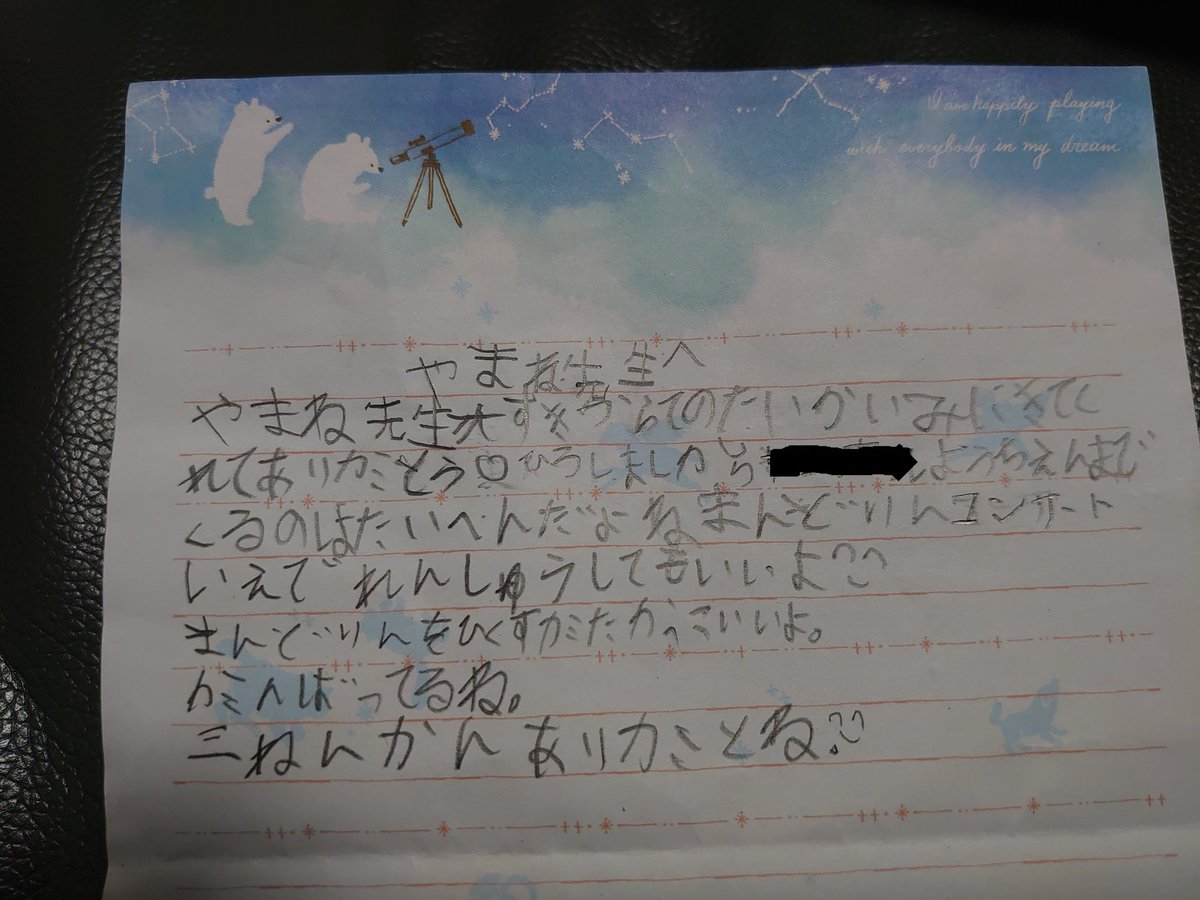 I am happily playing
with everybody in my dream
やまね先生へ
やまね先生大すきからてのたいかいみにきてく
れてありがとう♡ひろしましから ようちえんまで
くるのはたいへんだよねまんどりんコンサート
いえでれんしゅうしてもいいよ
まんどりんをひくすがたかっこいいよ。
がんばってるね。
三ねんかんありがとね